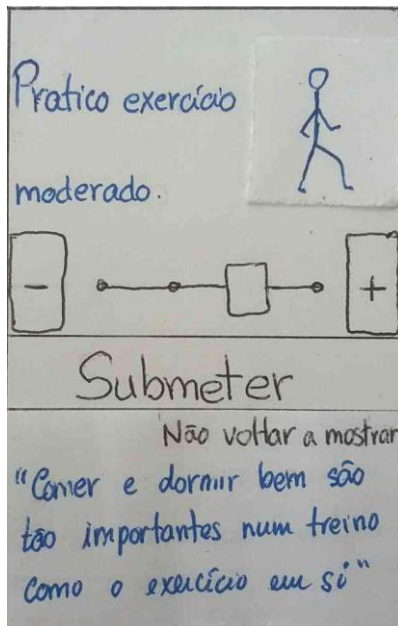 Pratico exercício
moderado.
- +
Submeter
Não voltar a mostrar
"Comer e dormir bem são
tão importantes num treino
como o exercício em si"